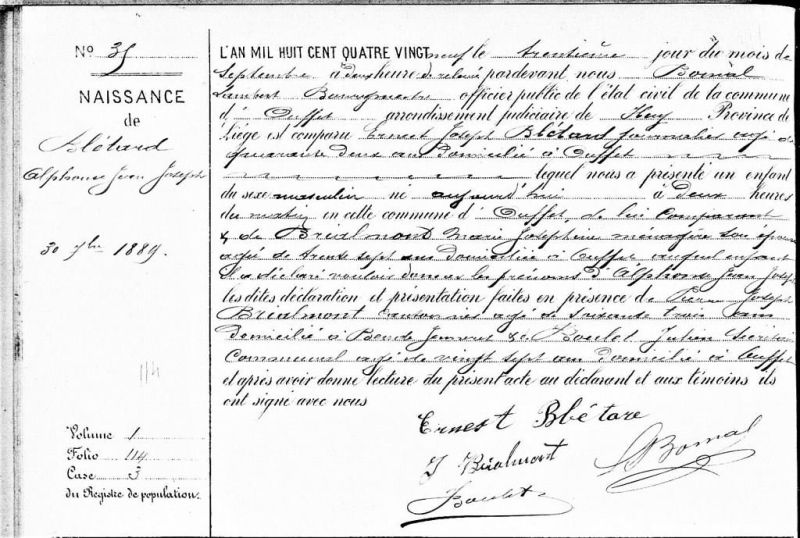 N° 35
NAISSANCE
de
Blétard
Alphonse Jean Joseph
30 7bre 1889.
114
Volume 1
Folio 114
Case 3
du Registre de population.
L'AN MIL HUIT CENT QUATRE VINGT neuf le trentième jour du mois de
Septembre à deux heures de relevée pardevant nous Bomal
Lambert Bourgmestre officier public de l'état civil de la commune
d' Ouffet arrondissement judiciaire de Huy Province de
Liège est comparu Ernest Joseph Blétard journalier agé de
quarante deux ans domicilié à Ouffet
lequel nous a présenté un enfant
du sexe masculin né aujourd'hui à deux heures
du matin en cette commune d' Ouffet, de lui comparant
& de Brialmont Marie Joséphine ménagère son épouse
agée de trente sept ans domiciliée à Ouffet auquel enfant
il a déclaré vouloir donner les prénoms d'Alphonse Jean Joseph
les dites déclaration et présentation faites en présence de Pierre Joseph
Brialmont cantonnier agé de soixante trois ans
domicilié à & de Boulet Julien Secrétaire
Communal agé de vingt sept ans domicilié à Ouffet
et après avoir donné lecture du présent acte au déclarant et aux témoins ils
ont signé avec nous
Ernest Blétare
J Brialmont
LBomal
Boulet